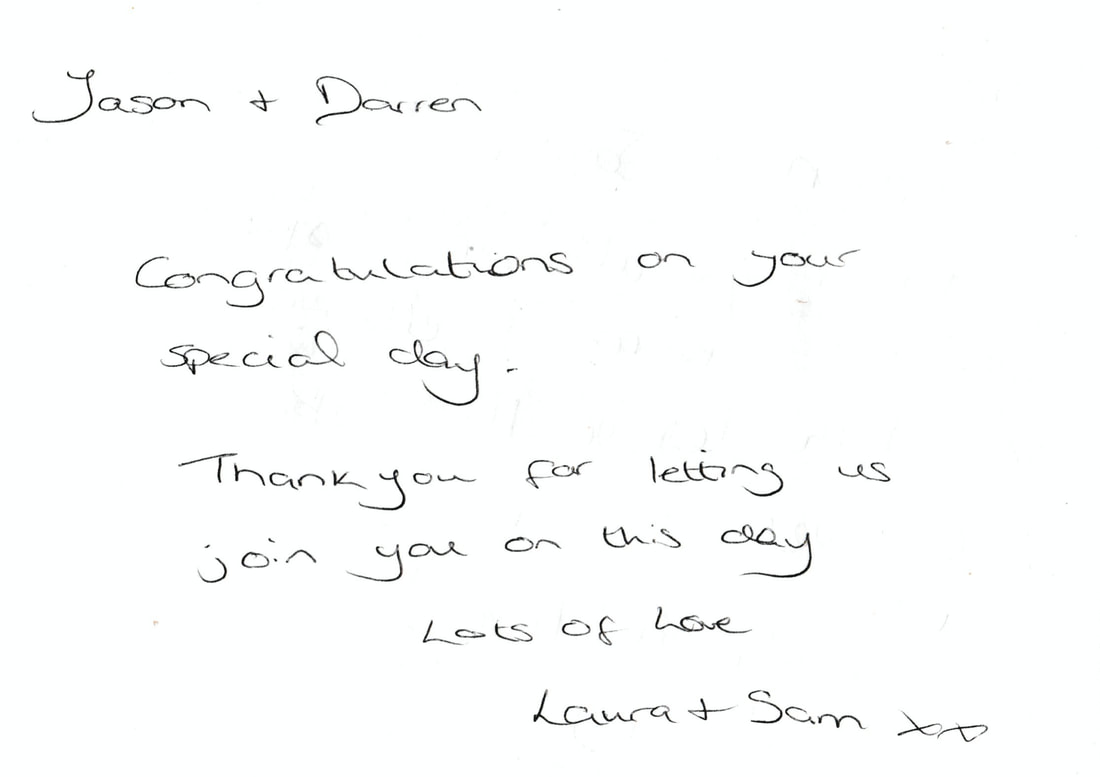 Jason + Darren
Congratulations on your
special day.
Thank you for letting us
join you on this day
Lots of Love
Laura + Sam xx